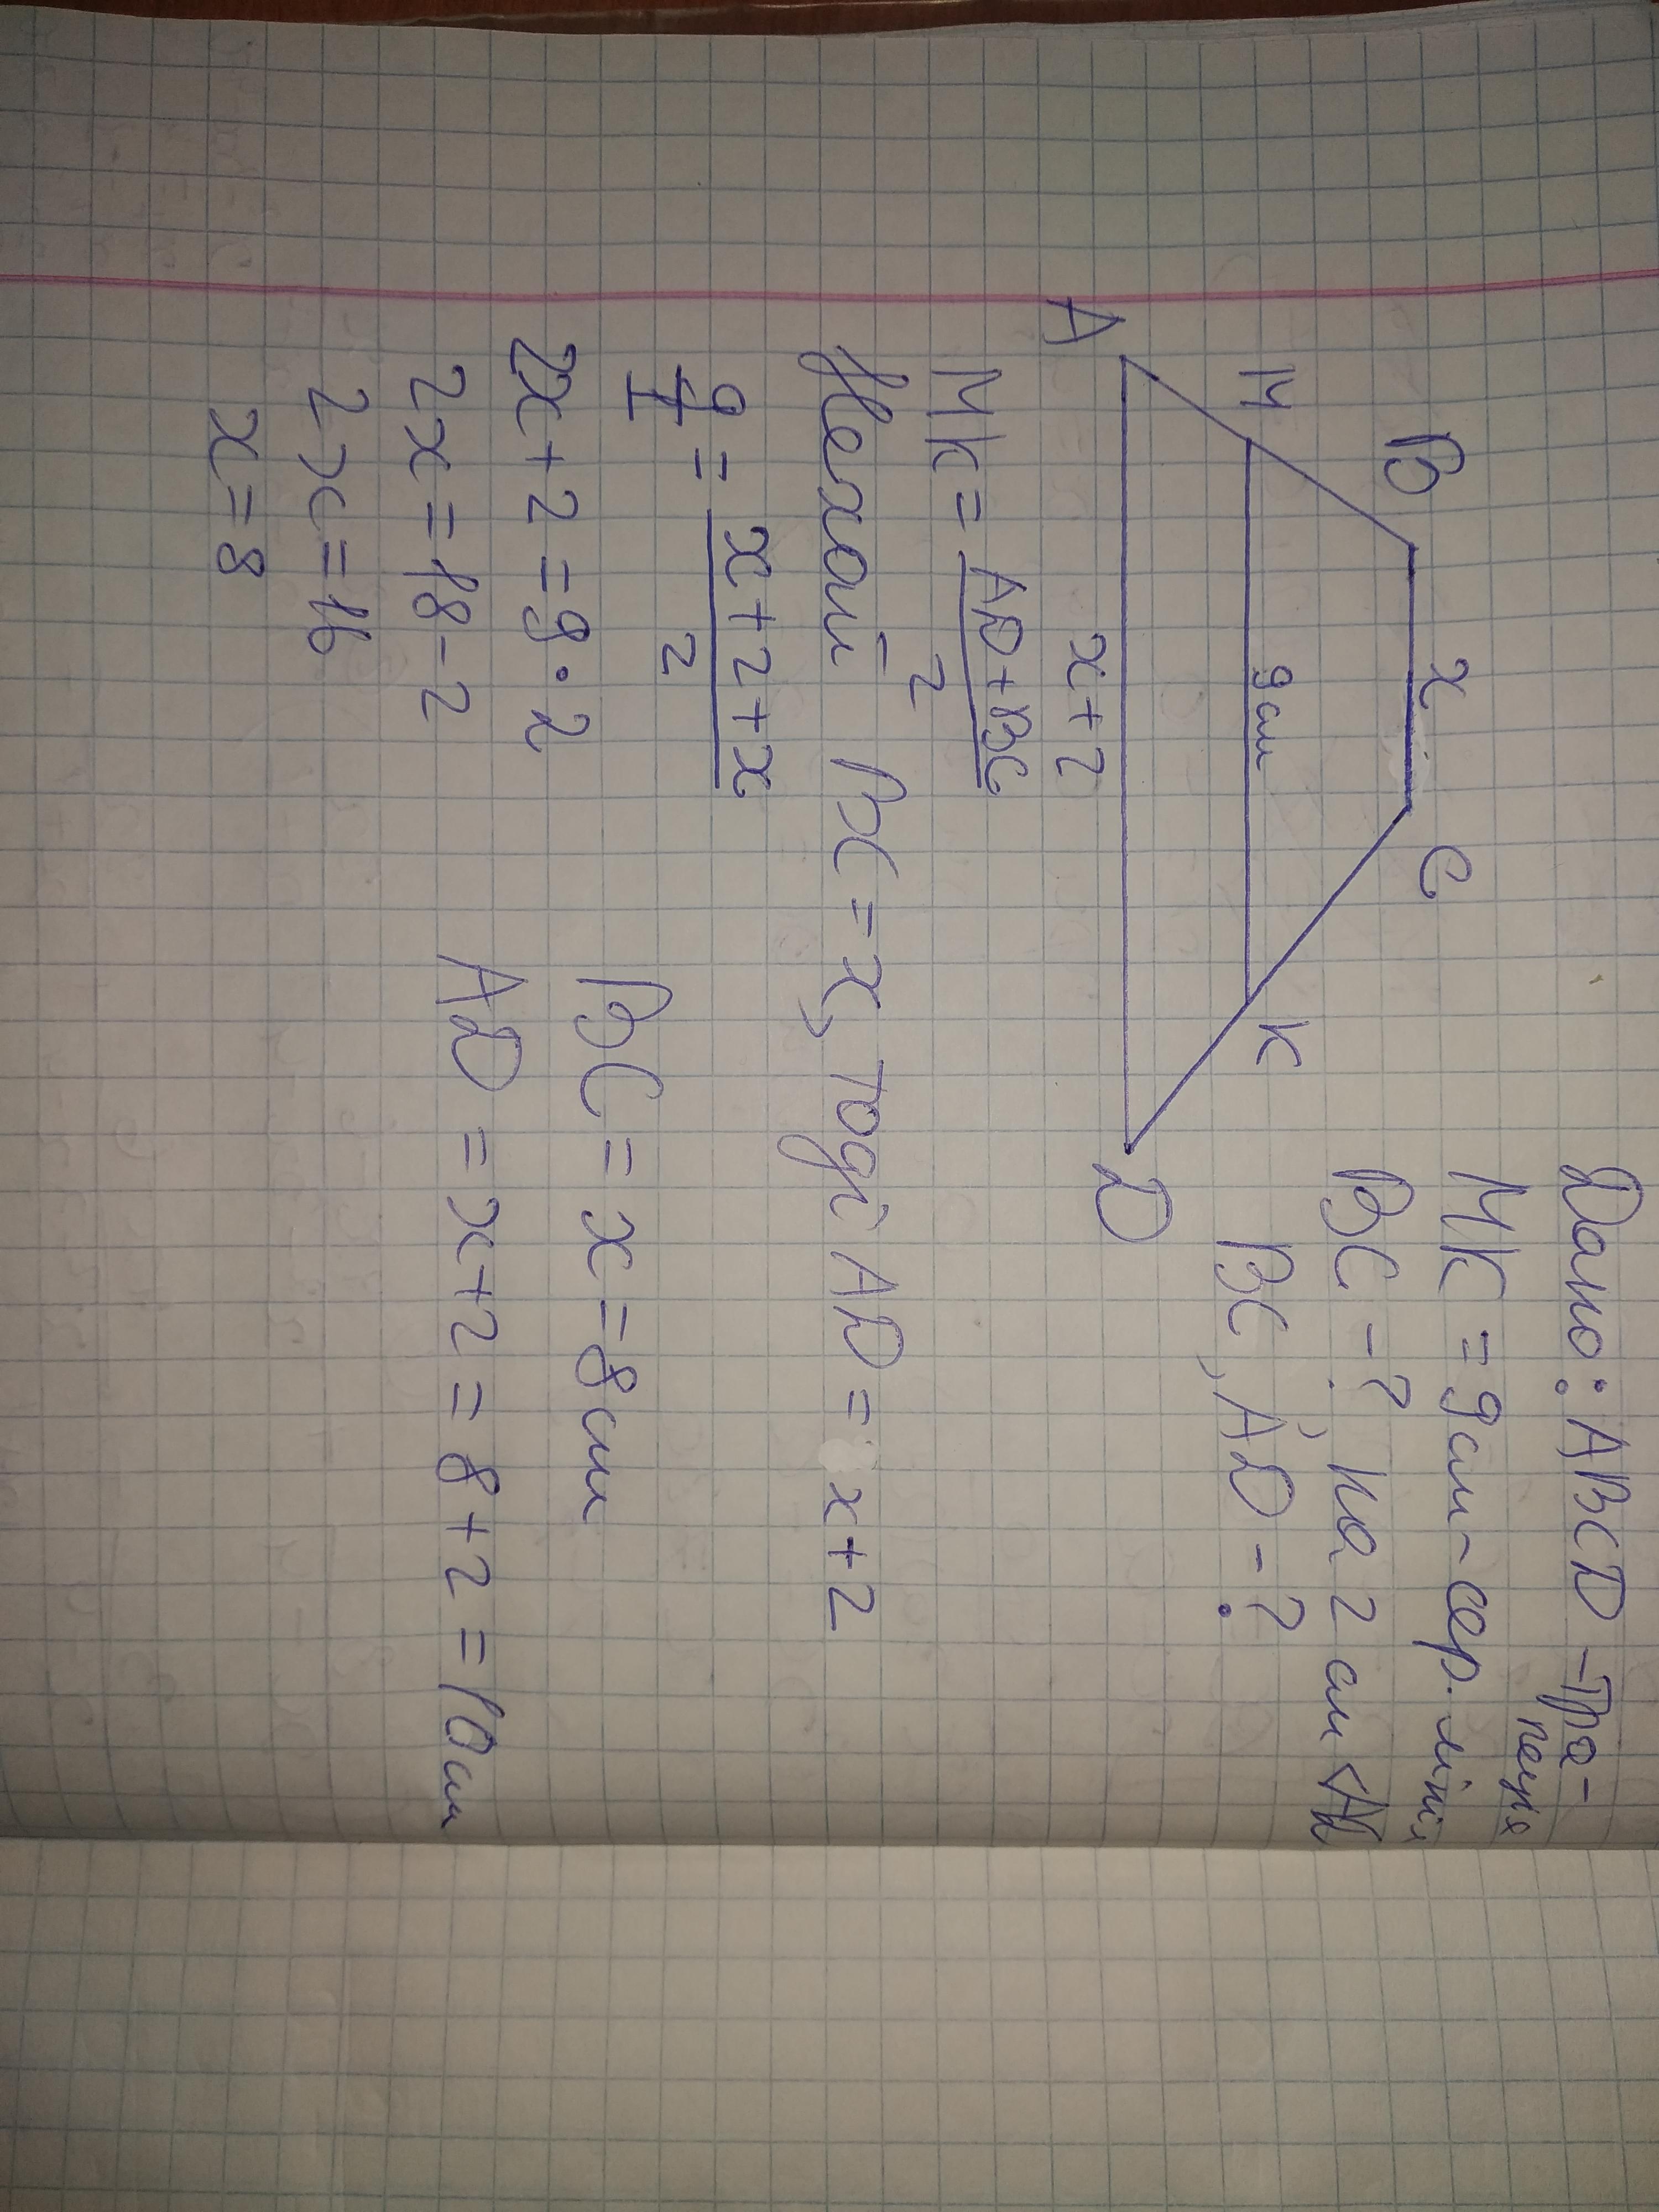 Дано: ABCD – тра-
пеція
MK = 9 см – сер. лінія
BC - ?, на 2 см < AD
BC, AD - ?
B x C
M 9 см K
A D
x+2
MK = \frac{AD+BC}{2}
Нехай BC = x, тоді AD = x+2
\frac{9}{1} = \frac{x+2+x}{2}
2x+2=9·2
2x=18-2
2x=16
x=8
BC = x = 8 см
AD = x+2 = 8+2 = 10 см